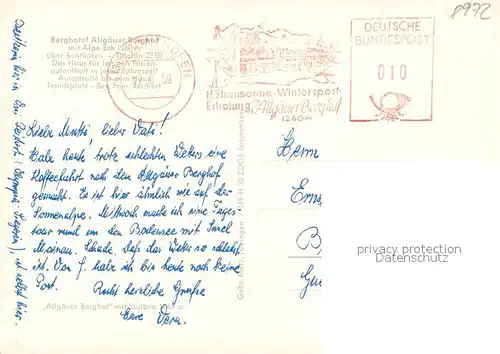 8972
Berghotel Allgäuer Berghof
mit Alpe Eck 1260 m
über Sonthofen - Telefon 2250
Das Haus für Ferien
aufenthalt in jeder Jahreszeit
Autostraße bis zum Haus
Tennisplatz - Bes. Fam. Neichert
HOFEN
59
Höhensonne-Wintersport-
Erholung, Allgäuer Berghof
1260 m
DEUTSCHE
BUNDESPOST
010
Liebe Mutti, lieber Vati!
Habe heute trotz schlechten Wetters eine
Kaffeefahrt nach dem Allgäuer Berghof
gemacht. Es ist hier ähnlich wie auf der
Sonnenalpe. Mittwoch mache ich eine Tages-
tour rund um den Bodensee mit Insel
Mainau. Schade, daß das Wetter so schlecht
ist. Von J. habe ich bis heute noch keine
Post. Recht herzliche Grüße
Eure Vera.
ist selbst hier.
Herrn
Erns
B
privacy protection
www.oldthing.de
"Allgäuer Berghof" mit Stuiben